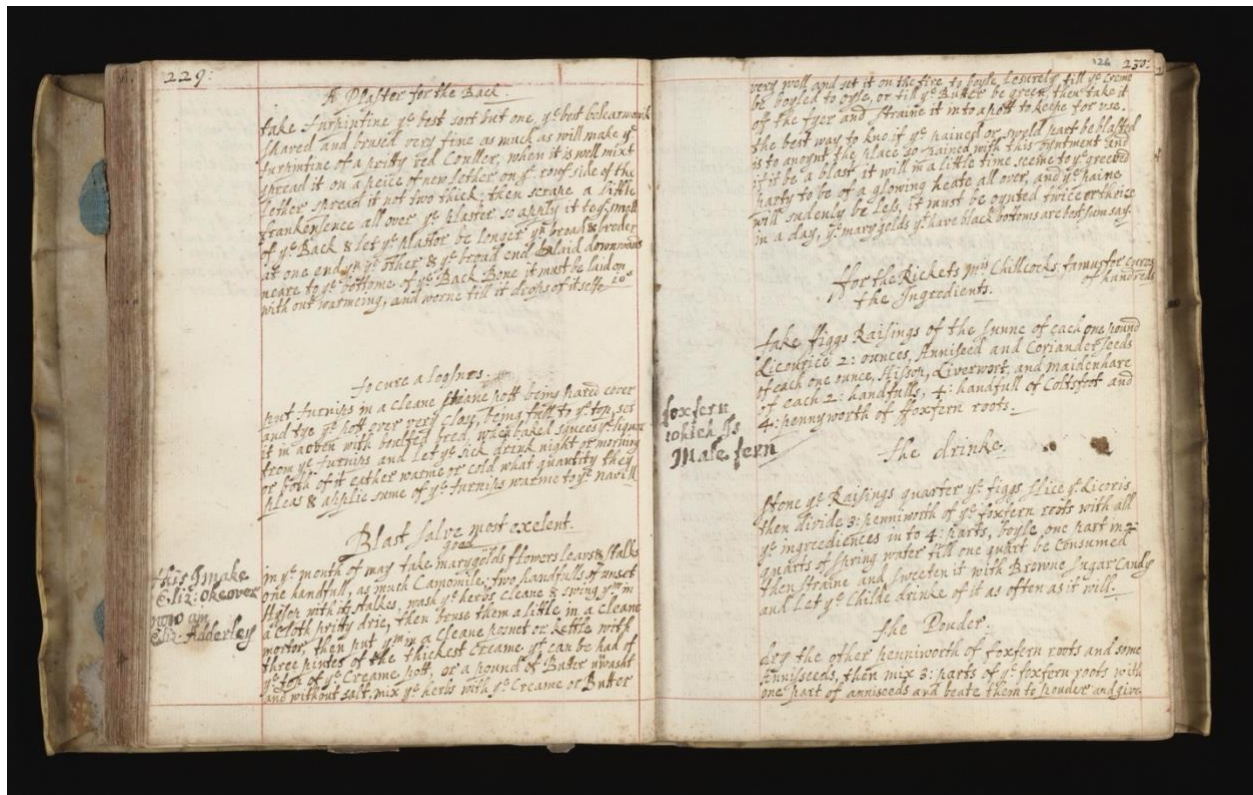 229:
A Plaster for the Back.
take turpintine yᵉ best sort but one, yᵉ best
shaved and brused very fine as much as will make yᵉ
turpintine of a pritty red Couller, when it is well mixt
spread it on a peice of new lether on yᵉ rouf side of the
lether spread it not two thick: then scrape a little
frankensence all over yᵉ plaster so apply it to yᵉ small
of yᵉ Back & let yᵉ plastor be longer yⁿ broad & broder
at one end yⁿ yᵉ other & yᵉ broad end laid downwards
neare to yᵉ bottome of yᵉ Back Bone it must be laid on
with out warmeing, and worne till it drops of itselfe
to cure a
put turnips in a cleane pott being pared cover
and tye yᵉ pott over very close, being full to yᵉ top, set
it in a oven with bread, when baked squees yᵉ liquor
from yᵉ turnips and let yᵉ sick drink night or morning
or both of it eather warme or cold what quantity they
pleas & applie sume of yᵉ turnips warme to yᵉ navill
Blast salve most exelent.
good
in yᵉ month of may take marygolds flowers leavs & stalks
one handfull, as much Camomile, two handfulls of unset
Hysop with its stalkes, wash yᵉ herbs cleane & swing yᵐ in
a cloth pritty drie, then bruse them a little in a cleane
mortor, then put yᵐ in a cleane posnet or kettle with
three pintes of the thickest creame yᵗ can be had of
yᵉ top of yᵉ Creame pott, or a pound of Butter unwasht
and without salt, mix yᵉ herbs with yᵉ Creame or Butter
this I make
Eliz: Okeover
now am
Eliz: Adderley
126 230:
very well and set it on the fire to boyle Lesurely till yᵉ creme
be boyled to oyle, or till yᵉ Butter be green, then take it
of the fyer and straine it into a pott to keepe for use.
the best way to kno if yᵉ pained or sweld part be blasted
is to anoynt the place so pained with this oyntment and
if it be a blast it will in a little time seeme to yᵉ greeved
party to be of a glowing heate all over, and yᵉ paine
will sudenly be less, it must be oynted twice or thrice
in a day, yᵉ marygolds yᵗ have black bottoms are best sum say.
ffor the Rickets mʳˢ Chillcocks, famus for cures
of hundreds
the Ingredients.
take ffiggs Raisings of the sunne of each one pound
Licourice 2: ounces, Anniseed and Coriander seeds
of each one ounce, Hissop, Liverwort, and maidenhare
of each 2: handfulls, 4: handfull of Coltsfoot and
4: pennyworth of ffoxfern roots.
foxfern
which Is
Male fern
the drinke.
stone yᵉ Raisings quarter yᵉ figgs slice yᵉ Licoris
then divide 3: penniworth of yᵉ foxfern roots with all
yᵉ ingreediences in to 4: parts, boyle one part in 2:
quarts of spring water till one quart be consumed
then straine and sweeten it with Browne sugar Candy
and Let yᵉ Childe drinke of it as often as it will.
the Pouder.
dry the other penniworth of foxfern roots and some
Anniseeds, then mix 3: parts of yᵉ foxfern roots with
one part of anniseeds and beate them to pouder and give